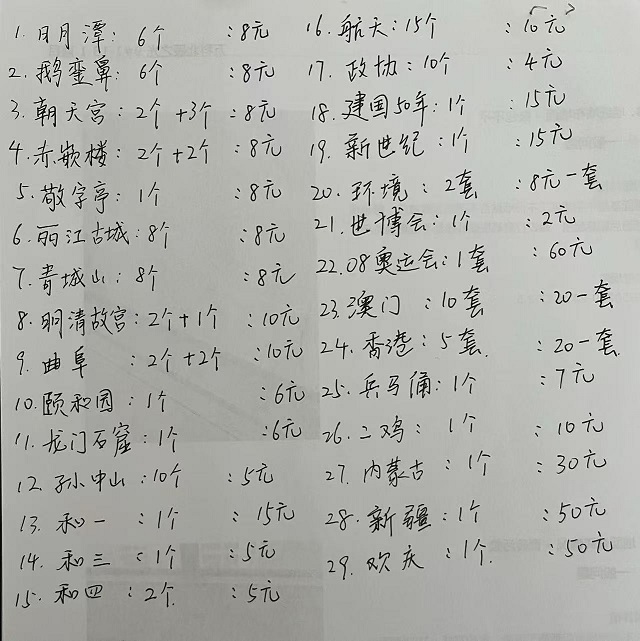 1. 日月潭: 6个 :8元
2. 鹅銮鼻: 6个 :8元
3. 朝天宫: 2个+3个 :8元
4. 赤嵌楼: 2个+2个 :8元
5. 敬字亭: 1个 :8元
6. 丽江古城: 8个 :8元
7. 青城山: 8个 :8元
8. 明清故宫: 2个+1个 :10元
9. 曲阜 : 2个+2个 :10元
10. 颐和园: 1个 :6元
11. 龙门石窟: 1个 :6元
12. 孙中山: 10个 :5元
13. 和一 : 1个 : 15元
14. 和三 : 1个 : 5元
15. 和四 : 2个. : 5元
16. 航天: 15个 : 10元
17. 政协: 10个 : 4元
18. 建国50年: 1个 : 15元
19. 新世纪: 1个 : 15元
20. 环境: 2套 :8元一套
21. 世博会: 1个 : 2元
22. 08奥运会: 1套 : 60元
23. 澳门 : 10套 :20一套
24. 香港: 5套. :20一套
25. 兵马俑: 1个 : 7元
26. 二鸡: 1个 : 10元
27. 内蒙古 : 1个 : 30元
28. 新疆: 1个 :50元
29. 欢庆 : 1个. :50元